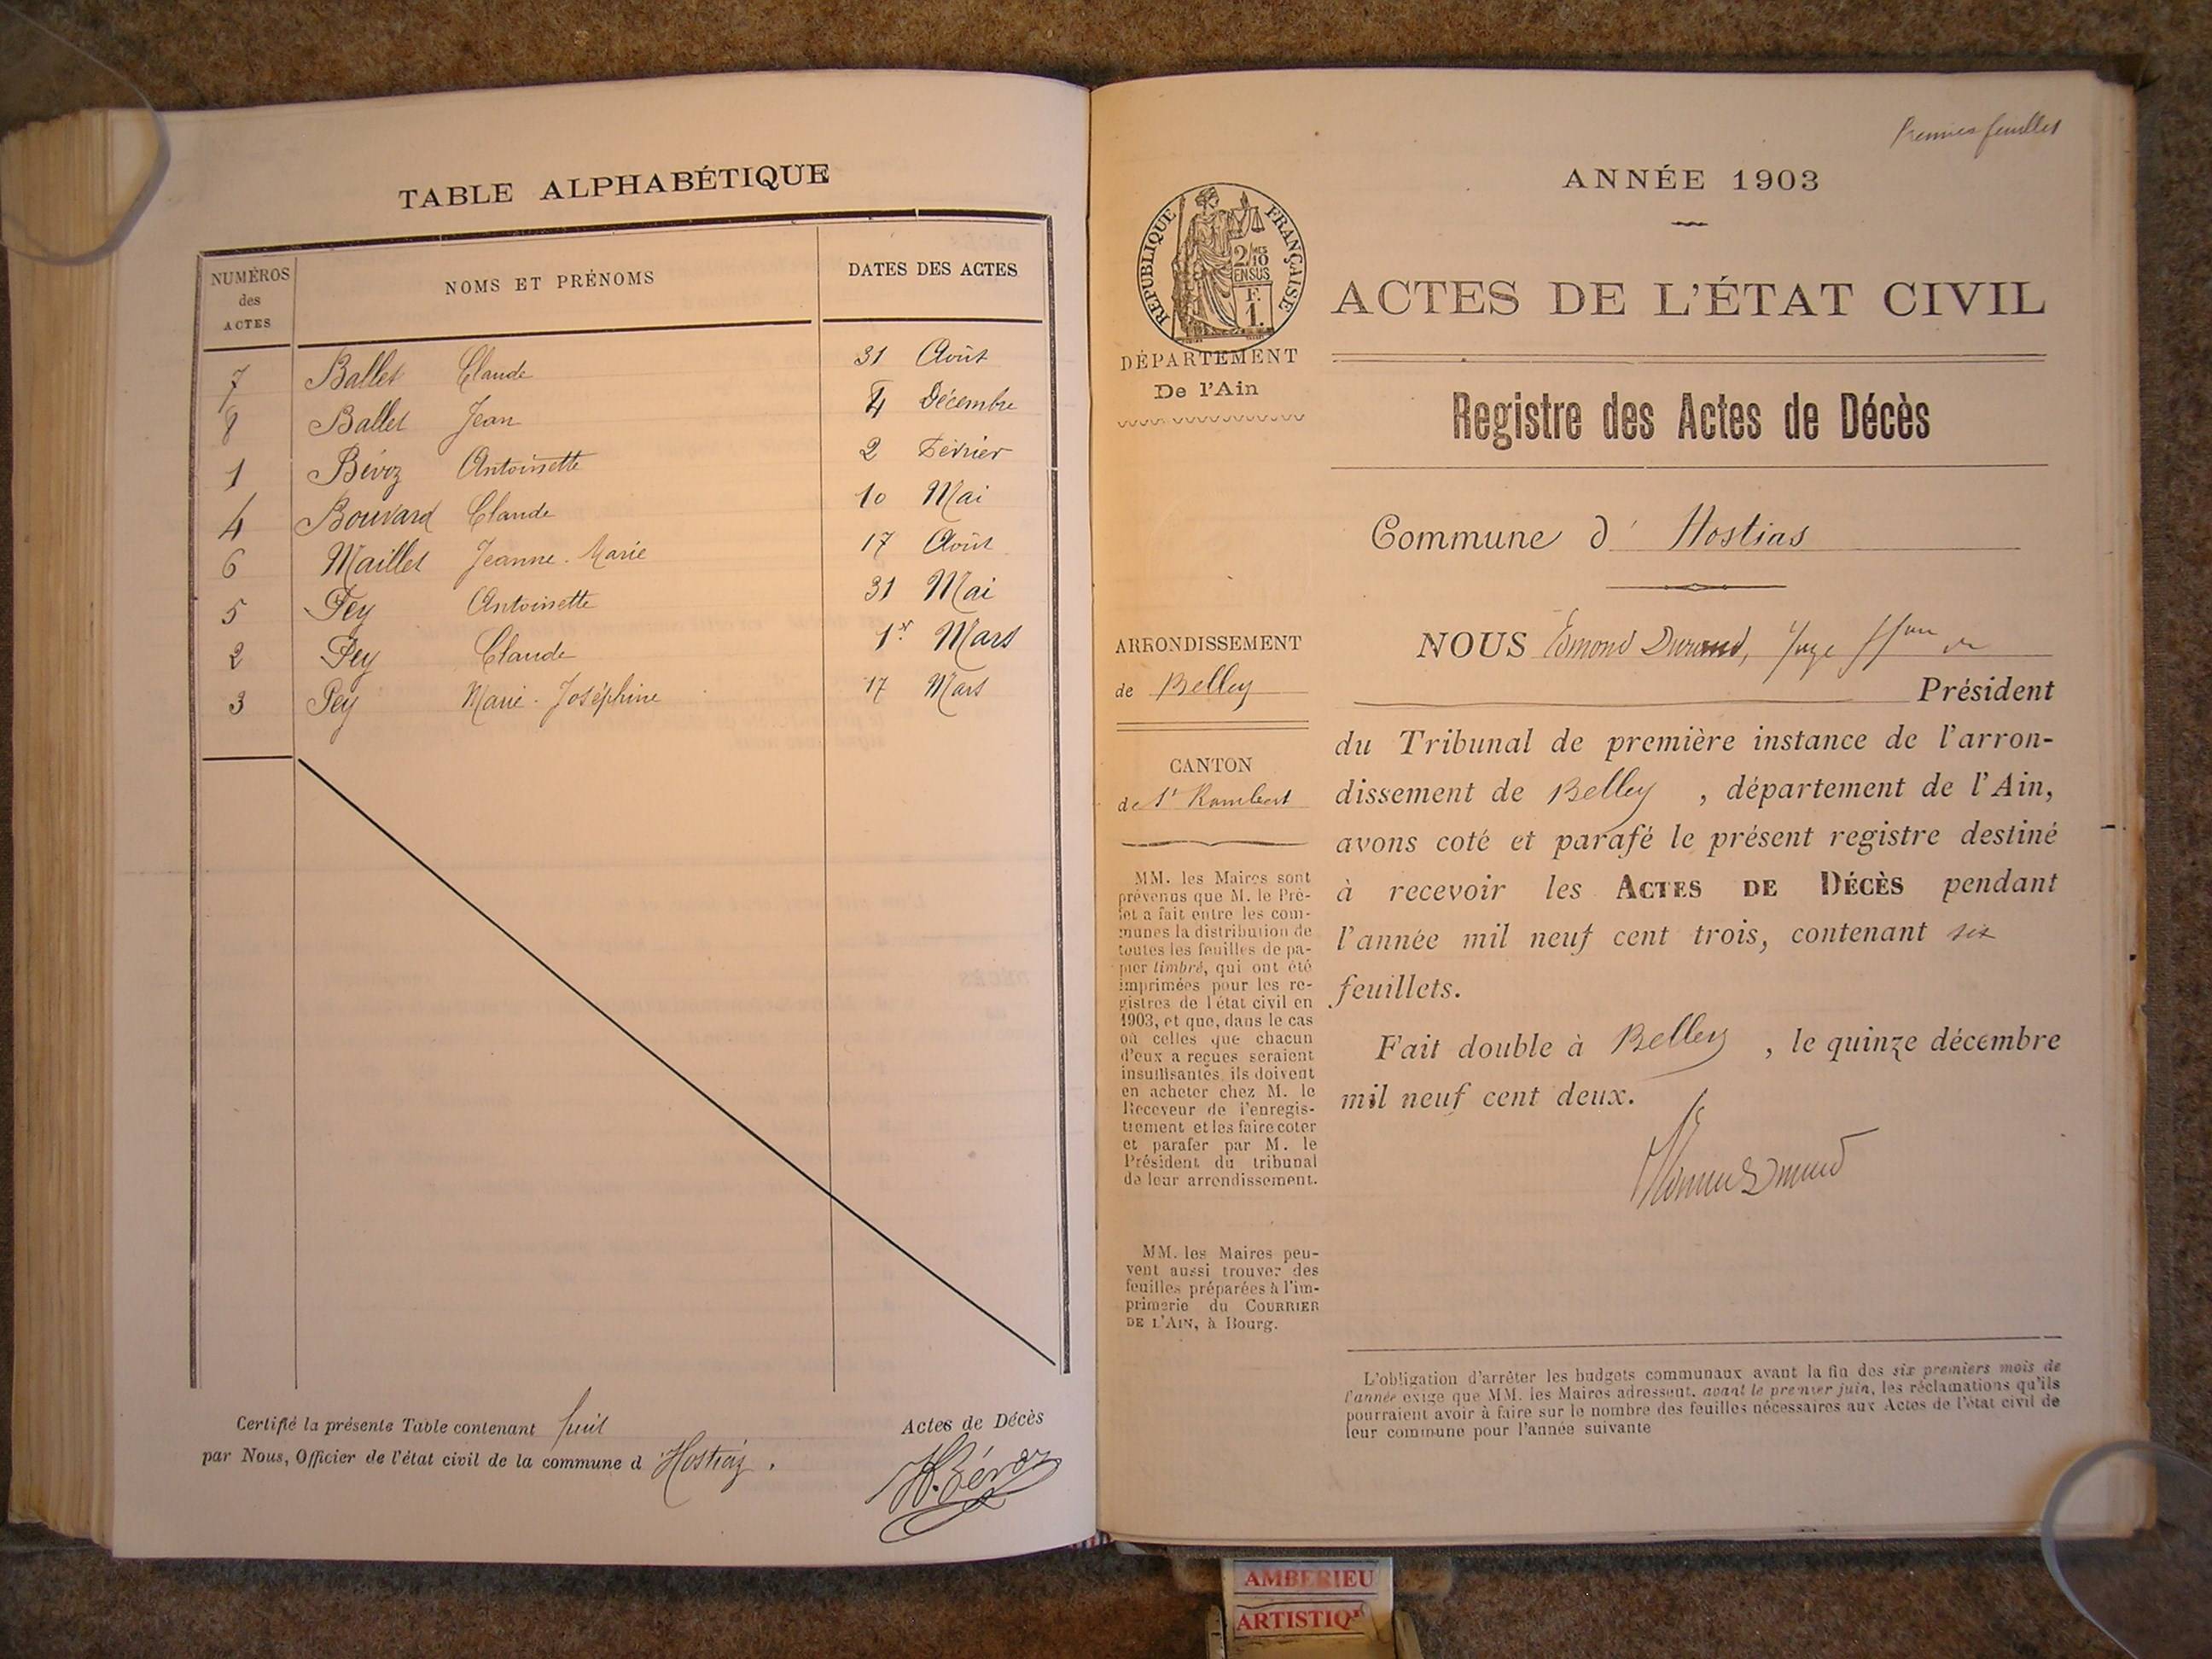 TABLE ALPHABÉTIQUE
NUMÉROS
des
ACTES
NOMS ET PRÉNOMS
DATES DES ACTES
7 Ballet Claude 31 Août
8 Ballet Jean 4 Décembre
1 Bévoz Antoinette 2 Février
4 Bouvard Claude 10 Mai
6 Maillet Jeanne-Marie 17 Août
5 Fey Antoinette 31 Mai
2 Pey Claude 1er Mars
3 Pey Marie-Joséphine 17 Mars
Certifié la présente Table contenant huit Actes de Décès
par Nous, Officier de l'état civil de la commune d'Hostiaz.
H. Bévoz
Premier feuillet
ANNÉE 1903
RÉPUBLIQUE FRANÇAISE
2/10
EN SUS
F.
1.
ACTES DE L'ÉTAT CIVIL
DÉPARTEMENT
De l'Ain
Registre des Actes de Décès
Commune d' Hostias
ARRONDISSEMENT
de Belley
CANTON
de St Rambert
MM. les Maires sont
prévenus que M. le Pré-
fet a fait entre les com-
munes la distribution de
toutes les feuilles de pa-
pier timbré, qui ont été
imprimées pour les re-
gistres de l'état civil en
1903, et que, dans le cas
où celles que chacun
d'eux a reçues seraient
insuffisantes, ils doivent
en acheter chez M. le
Receveur de l'enregis-
trement et les faire coter
et parafer par M. le
Président du tribunal
de leur arrondissement.
MM. les Maires peu-
vent aussi trouver des
feuilles préparées à l'im-
primerie du COURRIER
DE L'AIN, à Bourg.
NOUS Edmond Durand, Juge ffon de
Président
du Tribunal de première instance de l'arron-
dissement de Belley, département de l'Ain,
avons coté et parafé le présent registre destiné
à recevoir les ACTES DE DÉCÈS pendant
l'année mil neuf cent trois, contenant six
feuillets.
Fait double à Belley, le quinze décembre
mil neuf cent deux.
L'obligation d'arrêter les budgets communaux avant la fin des six premiers mois de
l'année exige que MM. les Maires adressent, avant le premier juin, les réclamations qu'ils
pourraient avoir à faire sur le nombre des feuilles nécessaires aux Actes de l'état civil de
leur commune pour l'année suivante
AMBERIEU
ARTISTIQ